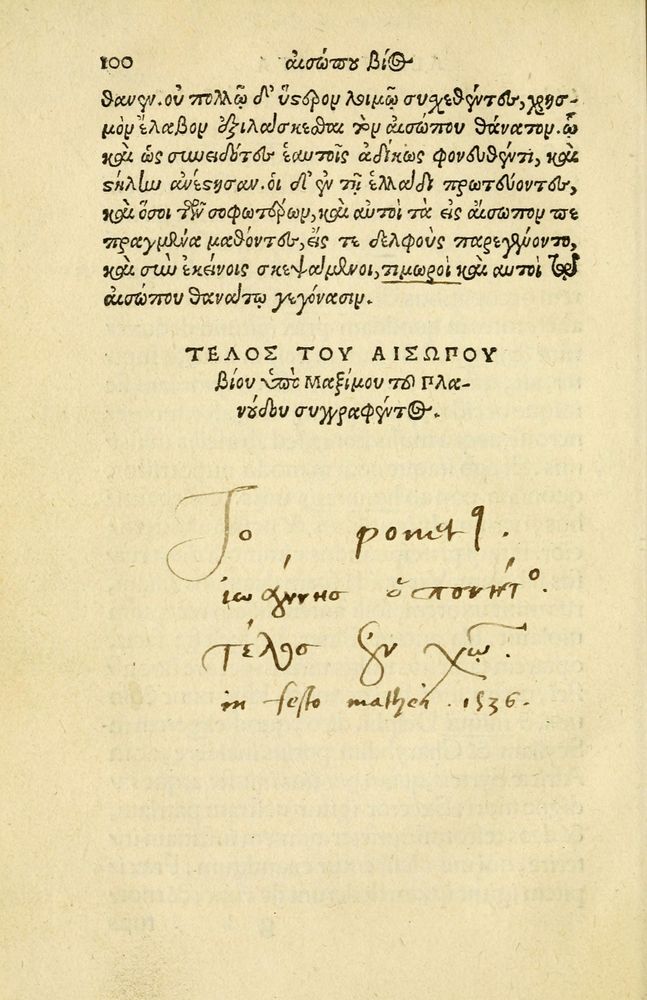 100 αἰσώπου βίος
θανεῖν. οὐ πολλῷ δ' ὕστερον λοιμῷ συσχεθέντες, χρησ-
μὸν ἔλαβον ἐξιλάσκεσθαι τὸν αἰσώπου θάνατον. ᾧ
καὶ ὡς συνειδότες ἑαυτοῖς ἀδίκως φονευθέντι, καὶ
στήλην ἀνέστησαν. οἱ δ' ἐν τῇ ἑλλάδι πρωτεύοντες,
καὶ ὅσοι τῶν σοφωτέρων, καὶ αὐτοὶ τὰ εἰς αἴσωπον πε
πραγμένα μαθόντες, εἴς τε δελφοὺς παρεγένοντο,
καὶ σὺν ἐκείνοις σκεψάμενοι, τιμωροὶ καὶ αὐτοὶ τοῦ
αἰσώπου θανάτου γεγόνασιν.
ΤΕΛΟΣ ΤΟΥ ΑΙΣΩΠΟΥ
βίου ὑπὸ Μαξίμου τοῦ Πλα-
νούδου συγγραφέντος.
Jo ponet
ιωάννησ ὁ πονητο.
τέλοσ ἐν χῳ.
in festo mathei. 1536.